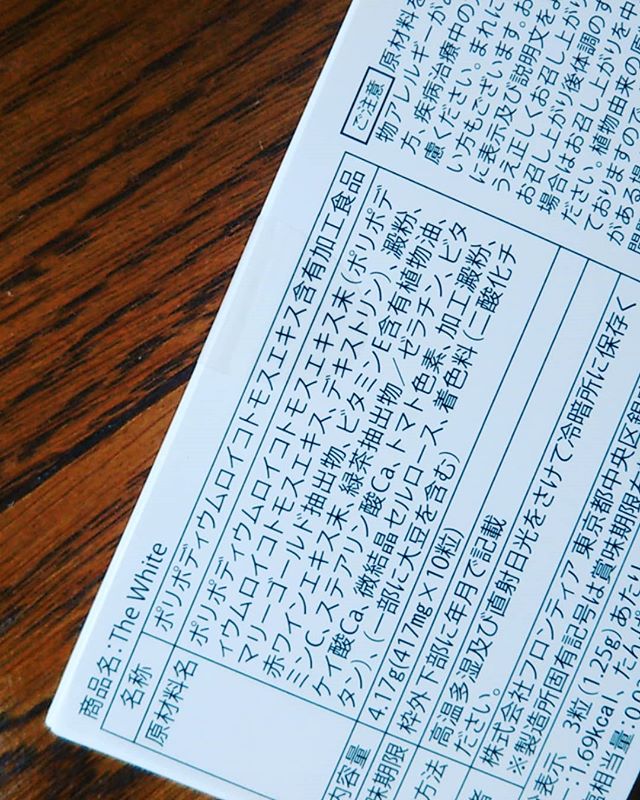 商品名:The White
名称
ポリポディウムロイコトモスエキス含有加工食品
原材料名
ポリポディウムロイコトモスエキス末(ポリポデ
ィウムロイコトモスエキス、デキストリン)、澱粉、
マリーゴールド抽出物、ビタミンE含有植物油、
赤ワインエキス末、緑茶抽出物/ゼラチン、ビタ
ミンC、ステアリン酸Ca、トマト色素、加工澱粉、
ケイ酸Ca、微結晶セルロース、着色料(二酸化チ
タン)、(一部に大豆を含む)
内容量
4.17g(417mg×10粒)
味期限
枠外下部に年月で記載
方法
高温多湿及び直射日光をさけて冷暗所に保存く
ださい。
者
株式会社フロンティア 東京都中央区銀
※製造所固有記号は賞味期限
表示 3粒(1.25g)あたり
:1.69kcal、たん
相当量:0
ご注意
原材料を
物アレルギーが
方、疾病治療中の
慮ください。まれに
い方もございます。お
に表示及び説明文をよ
うえ正しくお召し上がり
お召し上がり後体調のす
場合はお召し上がりを中
ださい。植物由来の
ておりますの
がある場